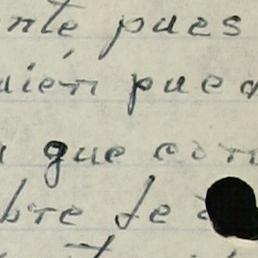 nte pues
uien pued
que com
bre de